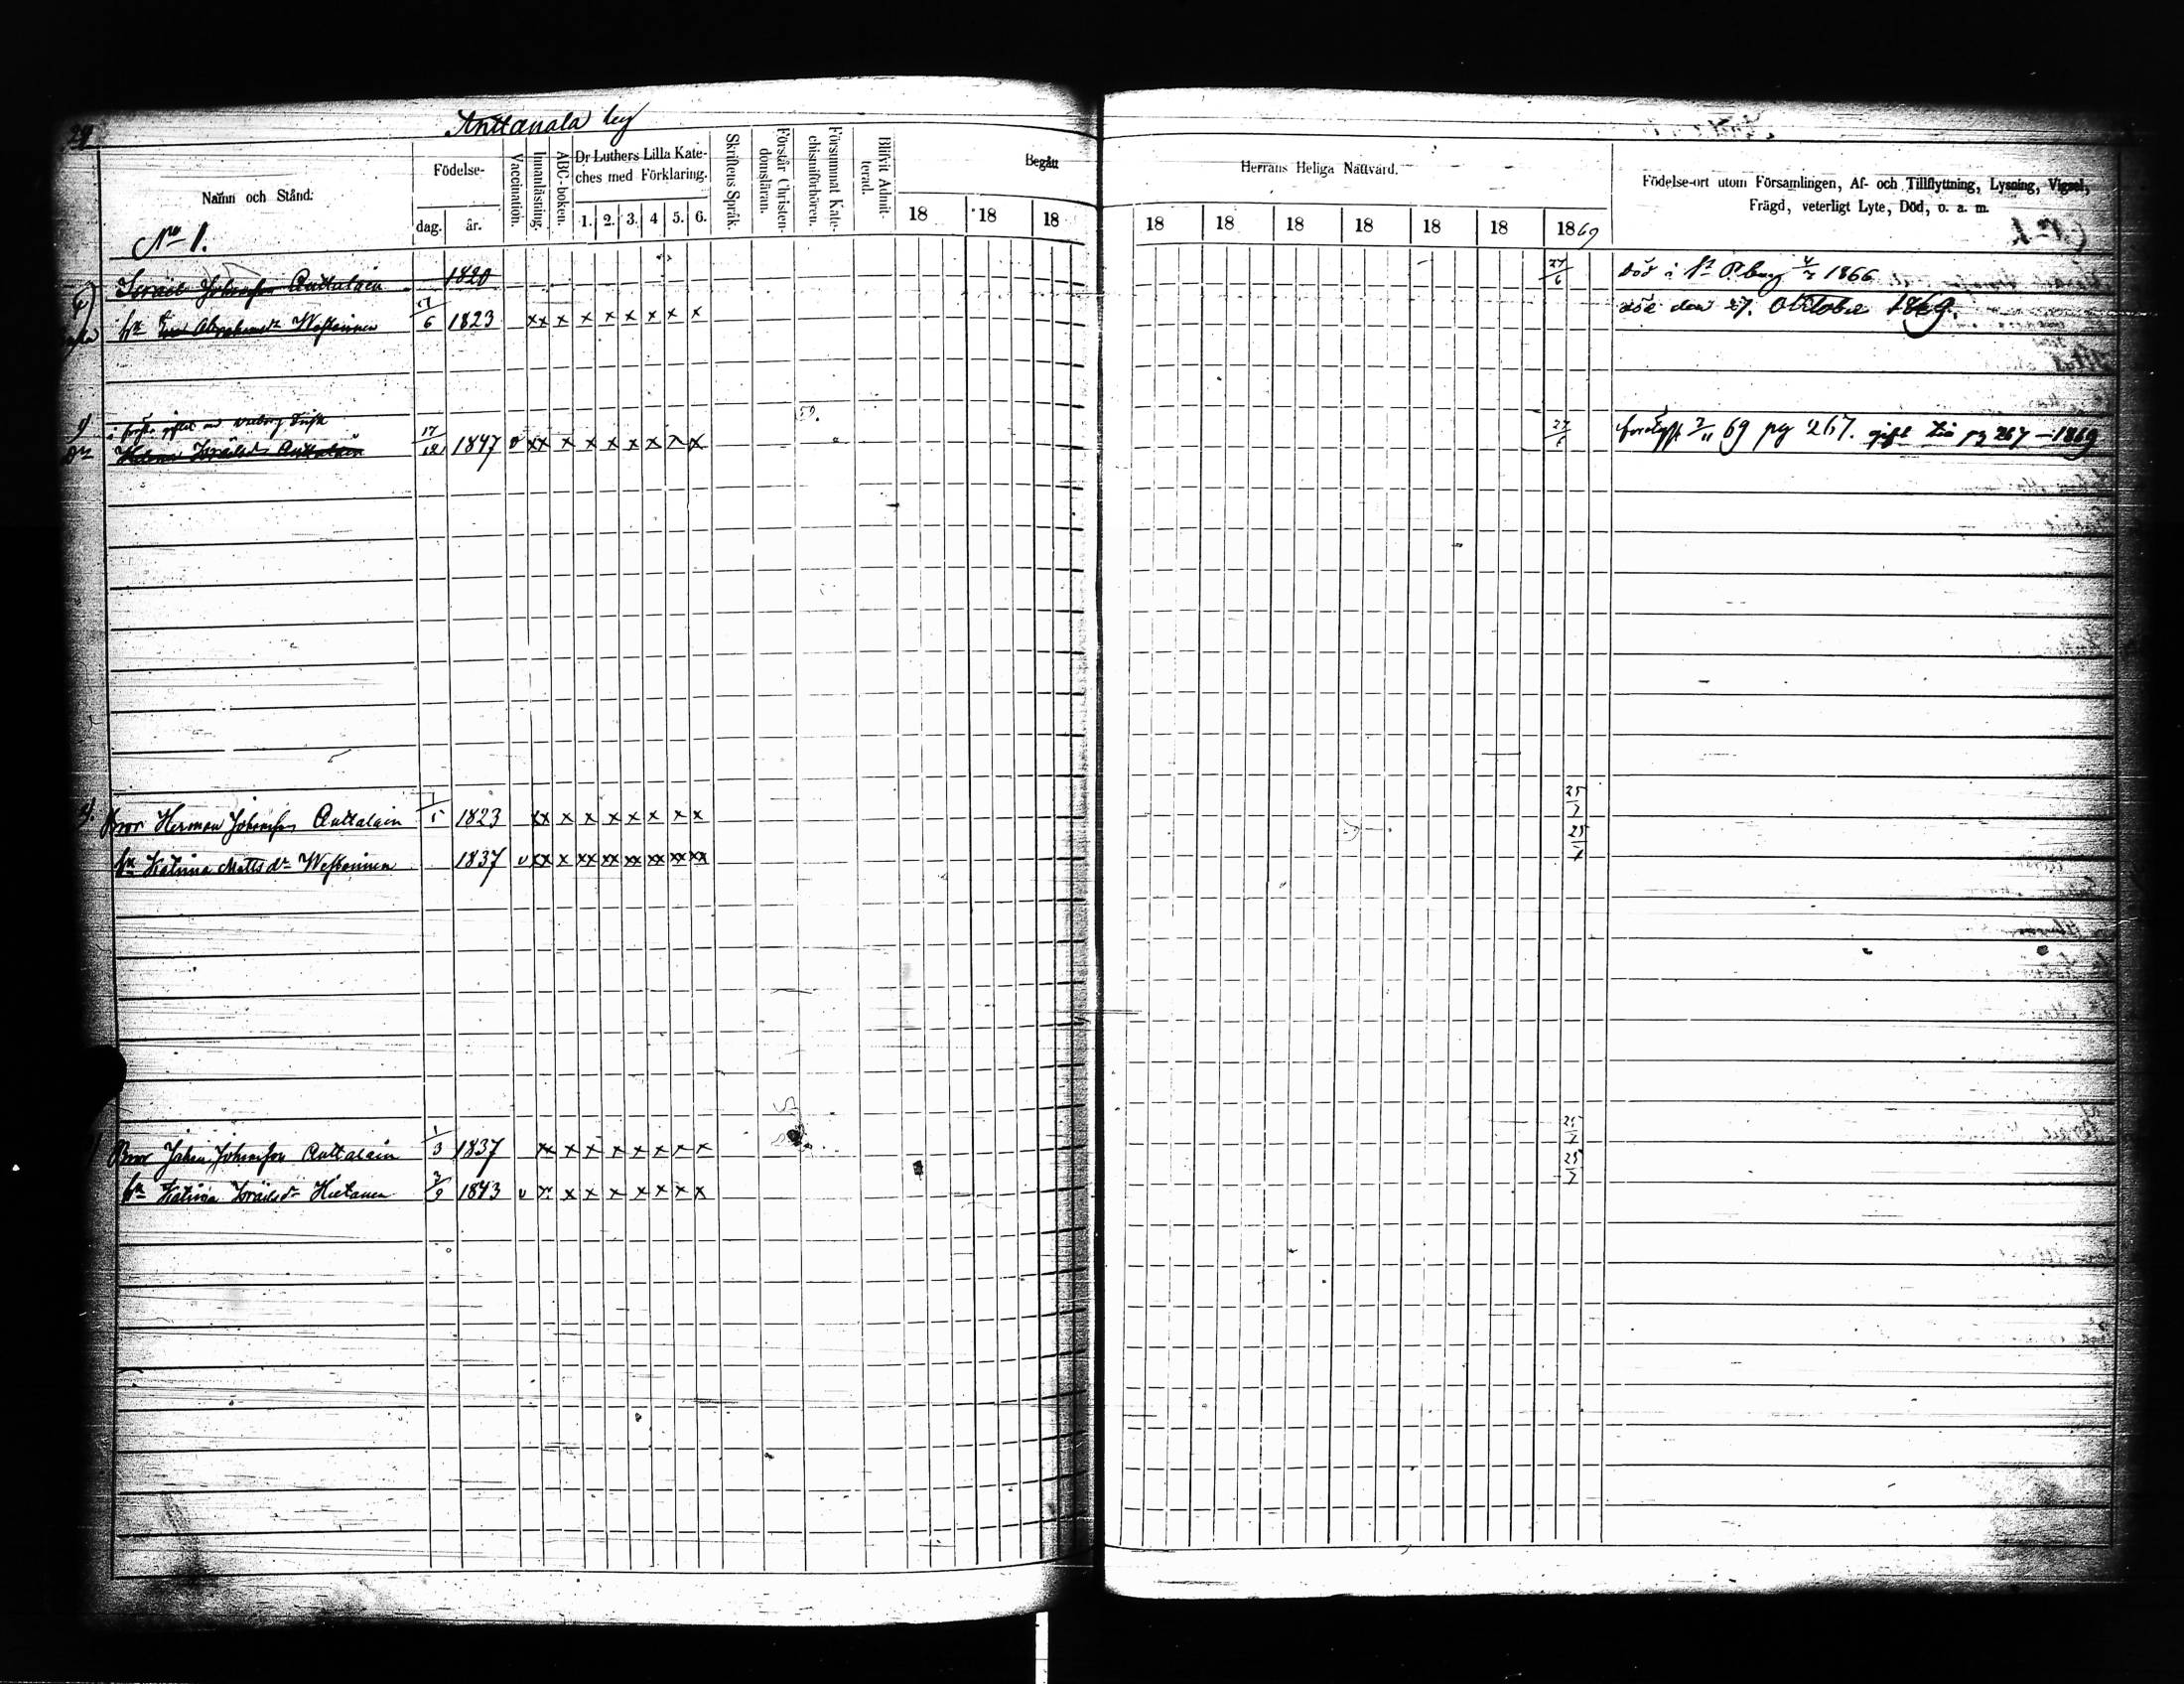 Anttanala by
Namn och Stånd:
Födelse-
dag.
år.
Vaccination.
Innanläsning.
ABC-boken.
Dr Luthers Lilla Kate-
ches med Förklaring.
1. 2. 3. 4 5. 6.
Skriftens Språk.
Förstår Christen-
domsläran.
Försummat Kate-
chismiförhören.
Blifvit Admit-
terad.
Begått
18 18 18
Herrans Heliga Nattvard.
18 18 18 18 18 18 1869
Födelse-ort utom Församlingen, Af- och Tillflyttning, Lysning, Vigsel,
Frägd, veterligt Lyte, Död, o. a. m.
No 1.
Israel Johansson Anttalain 1820 27/6 död i St P.burg 1866
hu Abrahamsdr Westerinen 6 1823 xx x x x x x x x död den 27. Oktober 1869.
Helena Israelsdr Anttalain 17/12 1847 v xx x x x x x x x 27/6 69 pg 267. gift pg 267 - 1869
Bror Herman Johansson Anttalain 1/5 1823 xx x x x x x x x 25/7
hu Katrina Mattsdr Westerinen 1837 v xx x xx xx xx xx xx xx 25/7
Bror Johan Johansson Anttalain 1/3 1837 xx x x x x x x x 25/7
hu Katrina Israelsdr Hietanen 3/9 1843 v x x x x x x x x 25/7